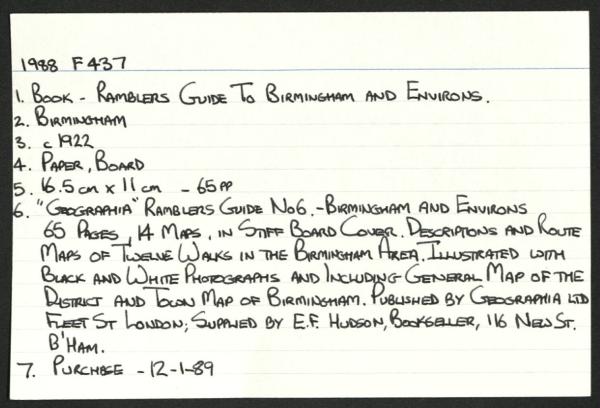 1988 F437
1. Book - Ramblers Guide To Birmingham and Environs.
2. Birmingham
3. c 1922
4. Paper, Board
5. 16.5 cm x 11 cm - 65 pp
6. "Geographia" Ramblers Guide No6. - Birmingham and Environs
65 Pages, 14 Maps, in Stiff Board Cover. Descriptions and Route
Maps of Twelve Walks in the Birmingham Area. Illustrated with
Black and White Photographs and Including General Map of the
District and Town Map of Birmingham. Published by Geographia Ltd
Fleet St London; Supplied by E.F. Hudson, Bookseller, 116 New St.
B'Ham.
7. Purchase - 12-1-89